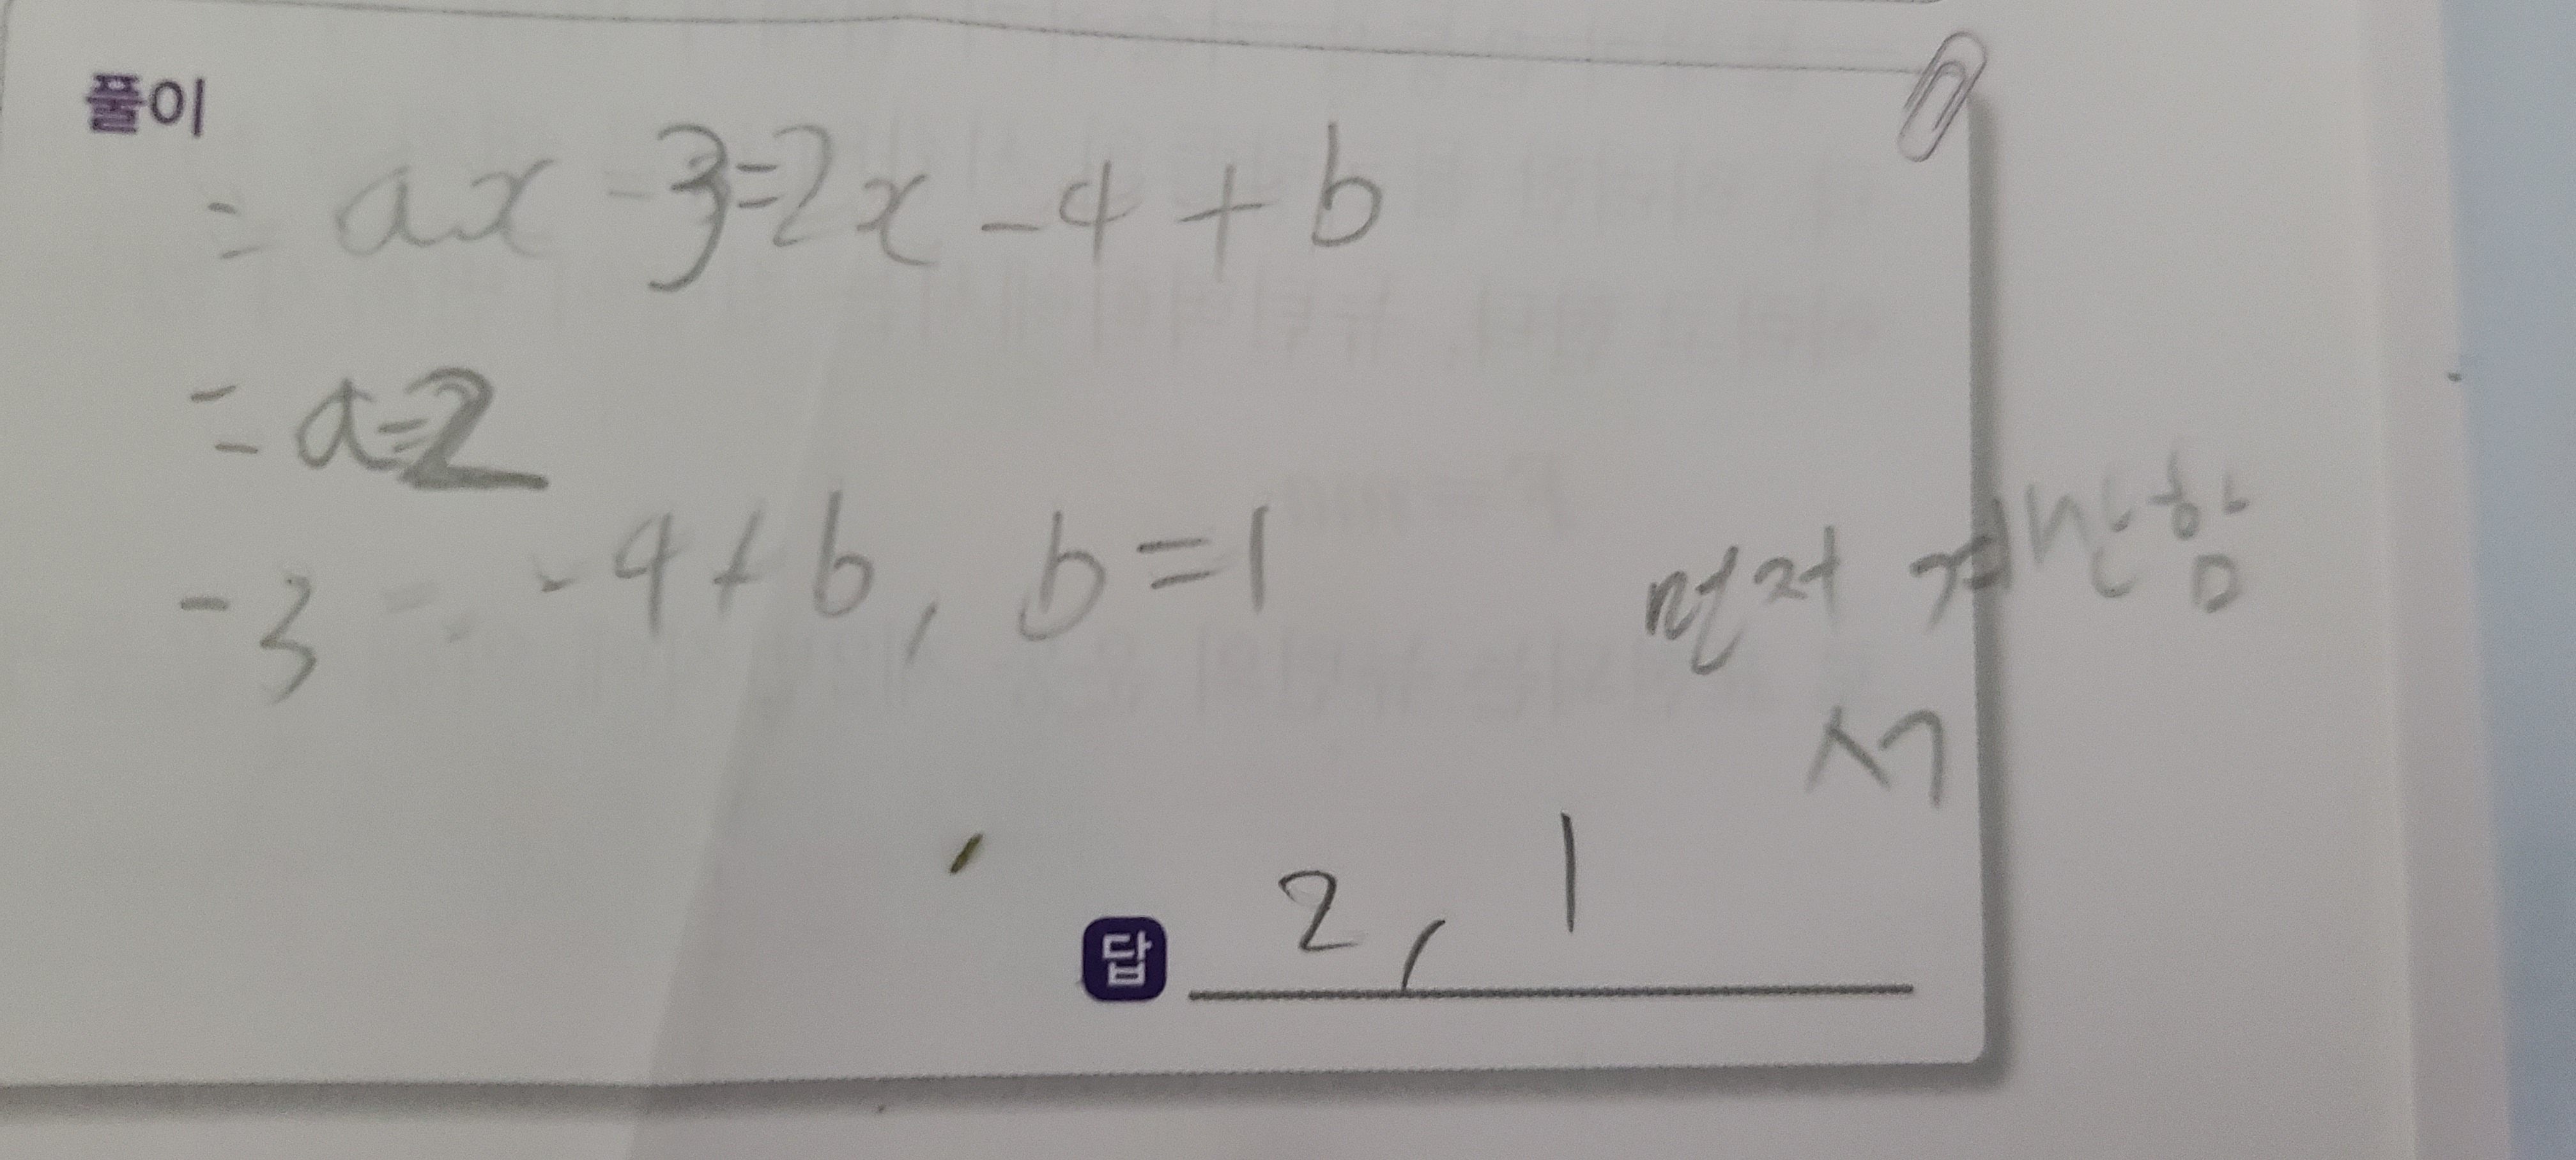 풀이
= ax - 3 = 2x - 4 + b
= a = 2
- 3 = - 4 + b, b = 1
먼저 계산함
답 2, 1